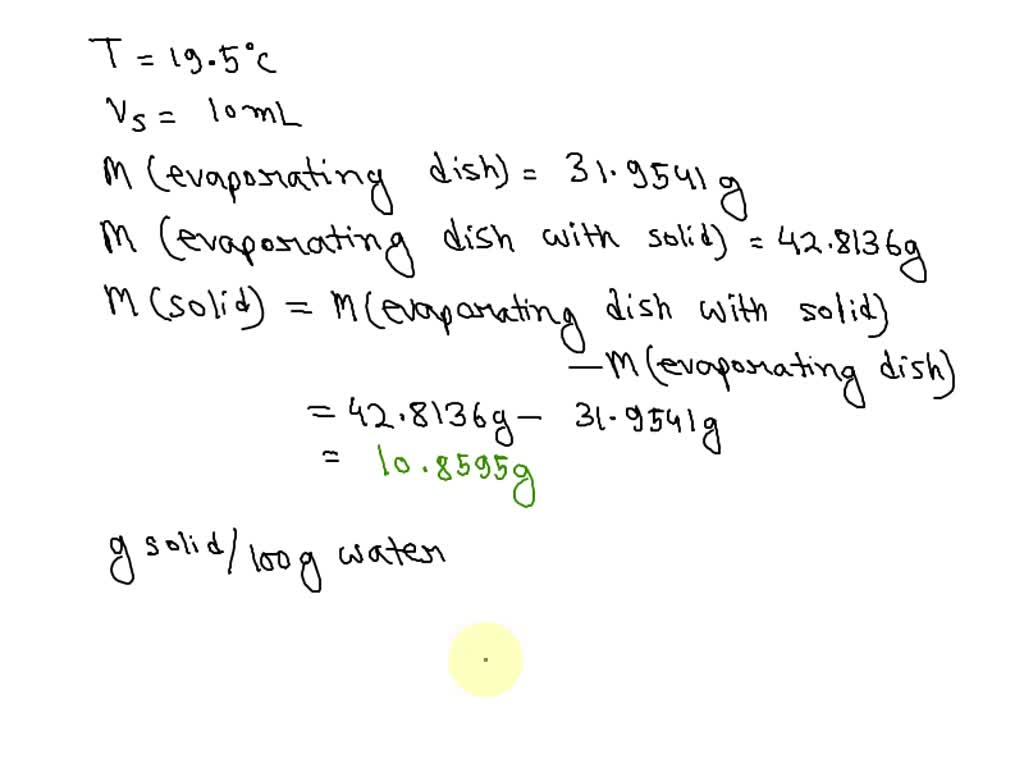 T = 19.5°C
Vs = 10 mL
M (evaporating dish) = 31.9541 g
M (evaporating dish with solid) = 42.8136 g
M (solid) = M (evaporating dish with solid)
— M (evaporating dish)
= 42.8136 g — 31.9541 g
= 10.8595 g
g solid/100 g water